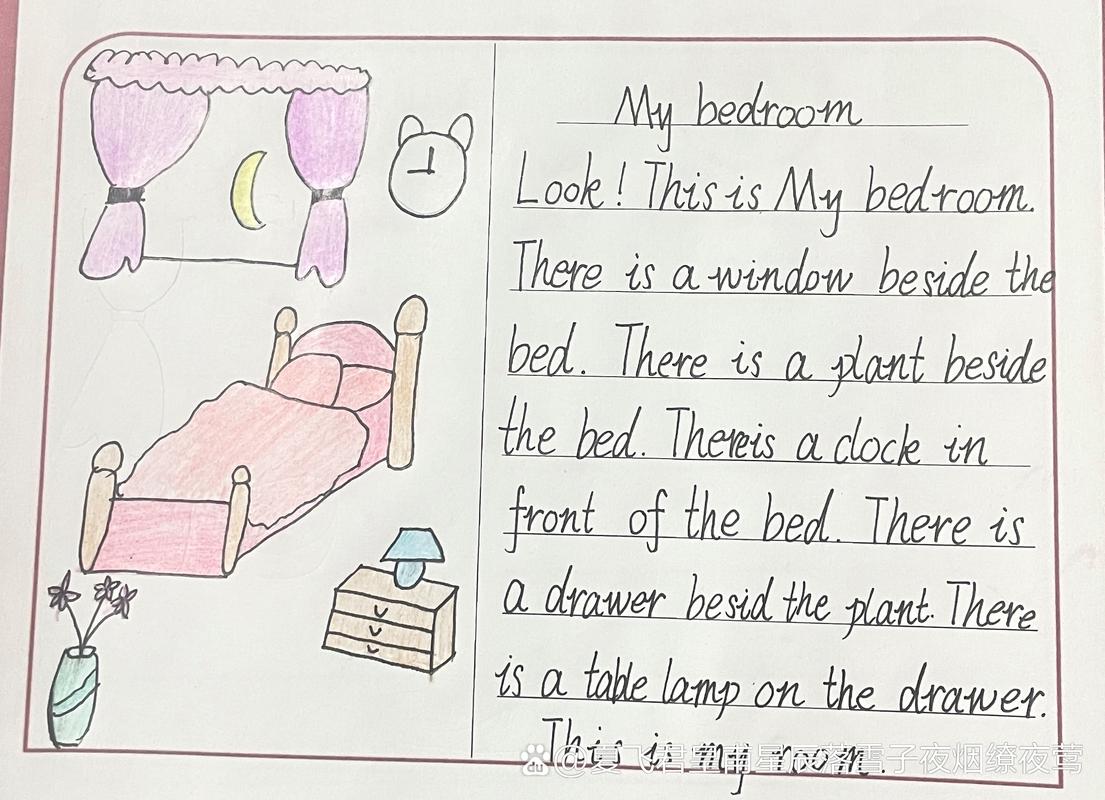 My bedroom
Look! This is My bedroom.
There is a window beside the
bed. There is a plant beside
the bed. Thereis a clock in
front of the bed. There is
a drawer besid the plant. There
is a table lamp on the drawer.
This is my room.